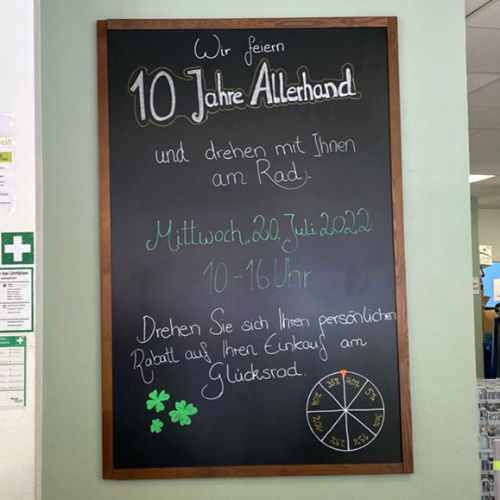 Wir feiern
10 Jahre Allerhand
und drehen mit Ihnen
am Rad.
Mittwoch, 20. Juli 2022
10-16 Uhr
Drehen Sie sich Ihren persönlichen
Rabatt auf Ihren Einkauf am
Glücksrad.
20%
5%
30%
15%
25%
35%